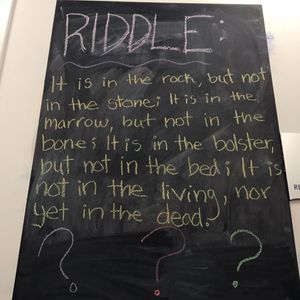 RIDDLE:
It is in the rock, but not
in the stone; It is in the
marrow, but not in the
bone; It is in the bolster,
but not in the bed; It is
not in the living, nor
yet in the dead.
? ? ?